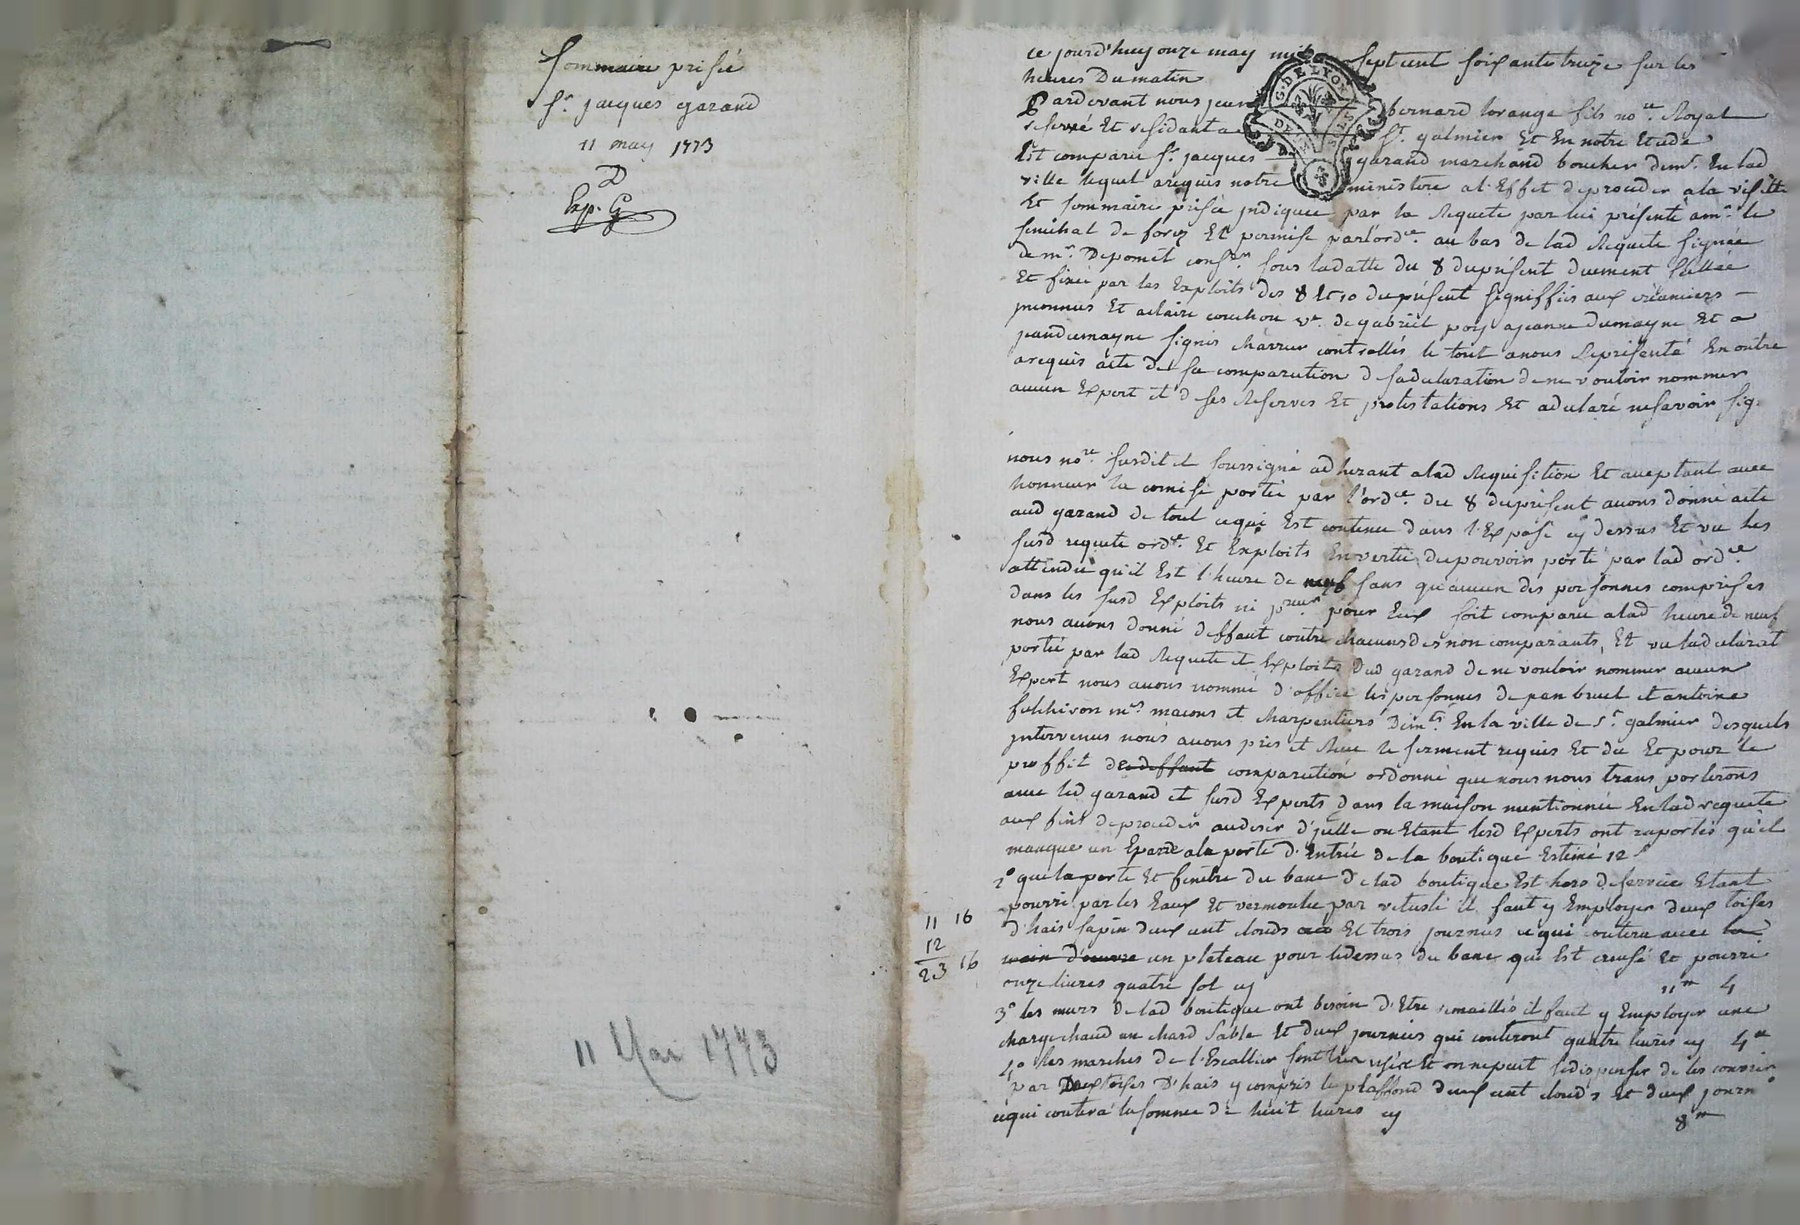 Sommaire prisée
Sr. jacques garand
11 may 1773
D
Exp. G
11 Mai 1773
G. DE LYON
ce jourd'huy onze may mil sept cent soixante treize sur les
heures Du matin
Pardevant nous jean bernard lorange fils nore. Royal
reservé Et residant a St. galmier Et En notre Etude
Est comparu Sr. jacques garand marchand boucher demt. En lad
ville lequel a requis notre ministere a l'Effet de proceder a la visitte
Et sommaire prisée jndiquée par la Requete par lui presenté a mr. le
senechal de forez Et permise par l'ordce. au bas de lad Requete signée
de mr. Depomet sous la datte du 8 du present duement scellée
Et fixée par les Exploits des 8 Et 10 du présent signiffiés aux créanciers
et a claire couchou ve. de gabriel poy a jeanne dumayne Et a
jean dumayne signés controllés le tout a nous Representé En outre
a requis acte de sa comparution de sa declaration de ne vouloir nommer
aucun Expert et de ses Reserves Et protestations Et a declaré ne savoir sig.
nous nore. susdit et soussigné adherant a lad Requisition Et acceptant avec
honneur la comise portée par l'ordce. du 8 du present avons donné acte
aud garand de tout ce qui Est contenu dans l'Exposé cy dessus Et vu les
susd requete ordce. Et Exploits En vertu du pouvoir porté par lad ordce
attendu qu'il Est l'heure de neuf sans qu'aucun des personnes comprises
dans les susd Exploits ni pour Eux soit comparu a lad heure de neuf
nous avons donné deffaut contre chacuns des non comparants, Et vu la declarat
portée par lad Requete et Exploits Dud garand de ne vouloir nommer aucun
Expert nous avons nommé d'office les personnes de jean bruel et antoine
mes. macons et charpentiers demts. En la ville de St. galmier desquels
jntervenus nous avons pris et Recu le serment requis Et du Et pour le
proffit de deffaut comparution ordonné que nous nous transporterons
avec led garand et susd Experts dans la maison mentionnée En lad requete
aux fins de proceder au desir d'jcelle ou Etant lesd Experts ont raportés qu'il
manque un Eparre a la porte d'Entrée de la boutique Estimé 12 s
2° que la porte Et fenetre du banc de lad boutique Est hors de service Etant
pourri par les Eaux Et vermoulu par vetusté il faut y Employer deux toises
d'hais sapin deux cent clouds Et trois journés ce qui coutera avec la
main d'œuvre un plateau pour le dessus du banc qui Est creusé Et pourri
onze livres quatre sol cy 11tt 4
3° les murs de lad boutique ont besoin d'Etre remaillés il faut y Employer une
charge chaud un chard sable Et deux journées qui couteront quatre livres cy 4tt
4° les marches de l'Escallier sont tres usées Et on ne peut se dispenser de les couvrir
par Deux toises D'hais y compris le plaffond deux cent clouds Et deux journ
ce qui coutera la somme de huit livres cy 8tt
11 16
12
23 16